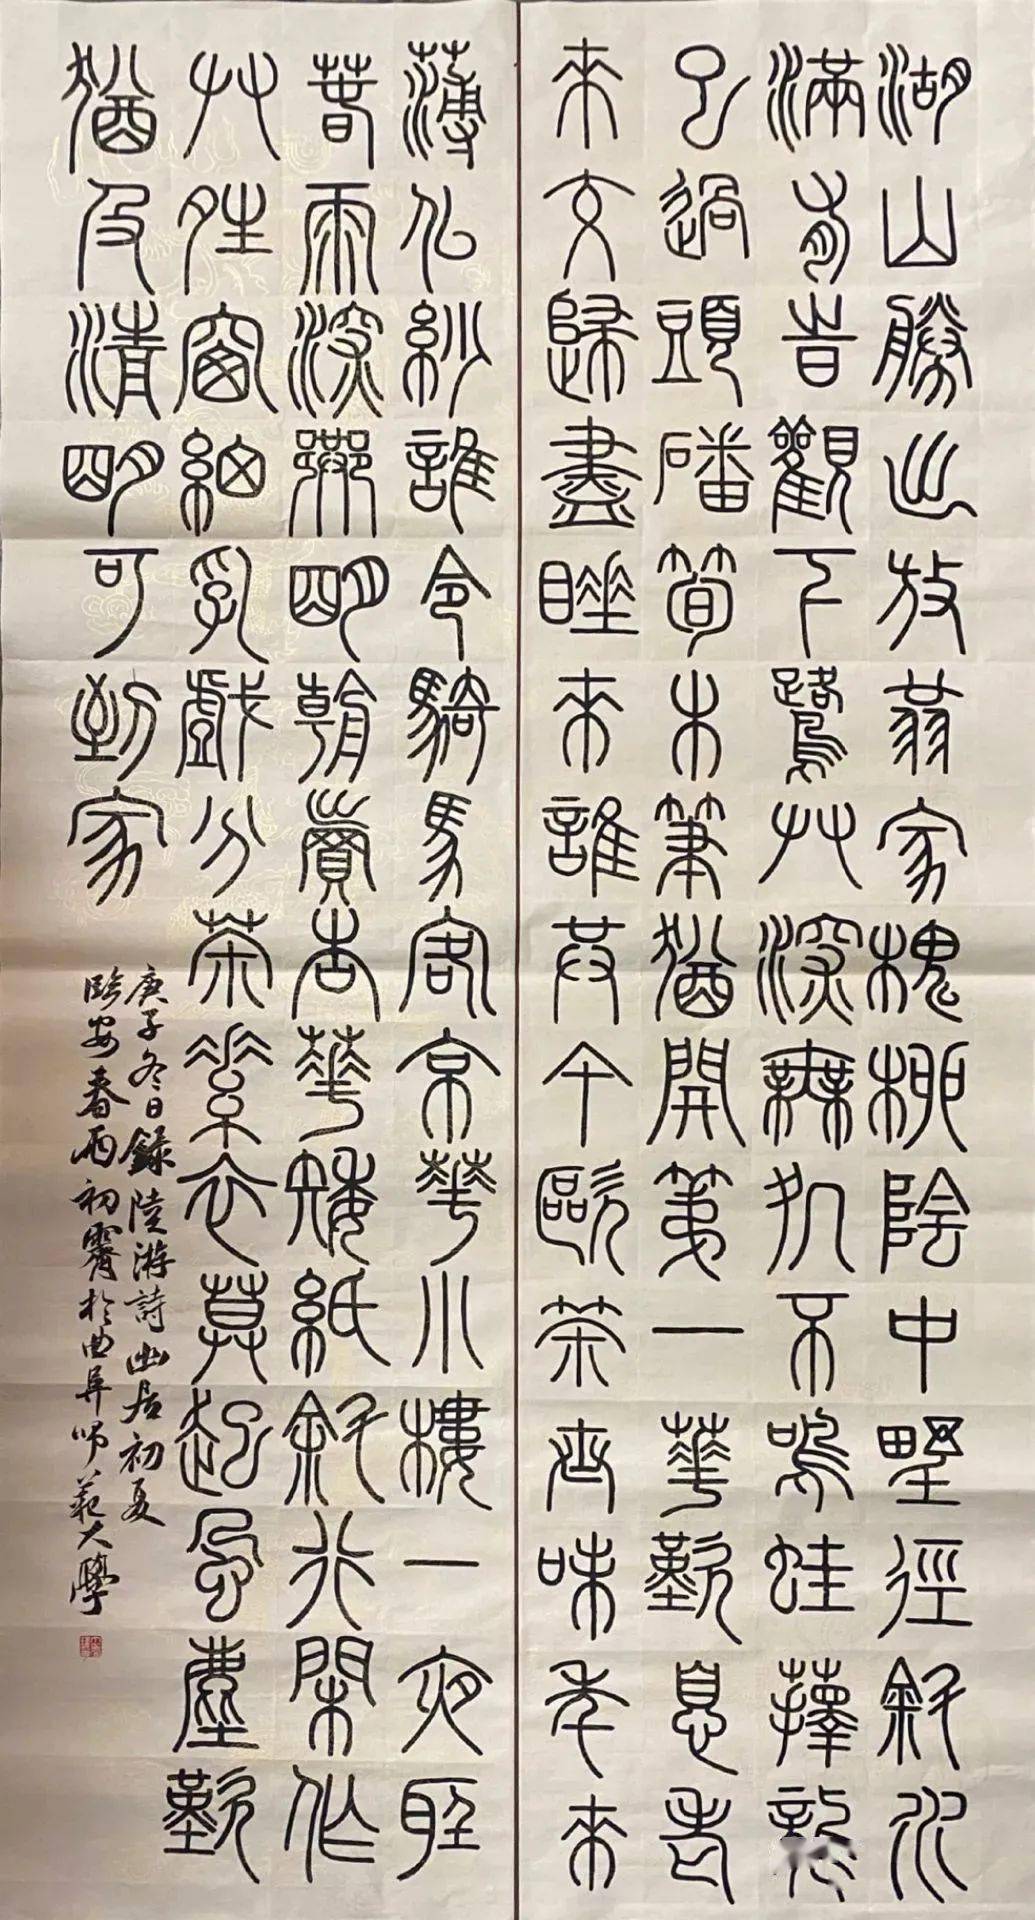 湖山勝処放翁家槐柳陰中野徑斜水
滿有時觀下鷺艸深無処不鳴蛙籜龍
已過頭磻筍木筆猶開第一華歎息老
來交歸盡睡來誰共午甌茶世味年來
薄似紗誰令騎馬客京華小樓一夜聽
春雨深巷明朝賣杏華矮紙斜行閒作
艸晴窗細乳戲分茶素衣莫起風塵歎
猶及清明可到家
庚子冬日錄陸游詩幽居初夏
臨安春雨初霽於曲阜師範大學